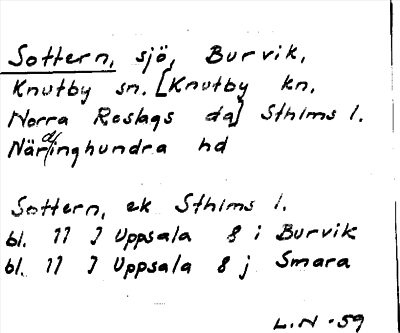 Sottern, sjö, Burvik,
Knutby sn. [Knutby kn,
Norra Roslags da] Sthlms l.
Närdinghundra hd
Sottern, ek Sthlms l.
bl. 11 I Uppsala 8 i Burvik
bl. 11 I Uppsala 8 j Smara
L.N -59